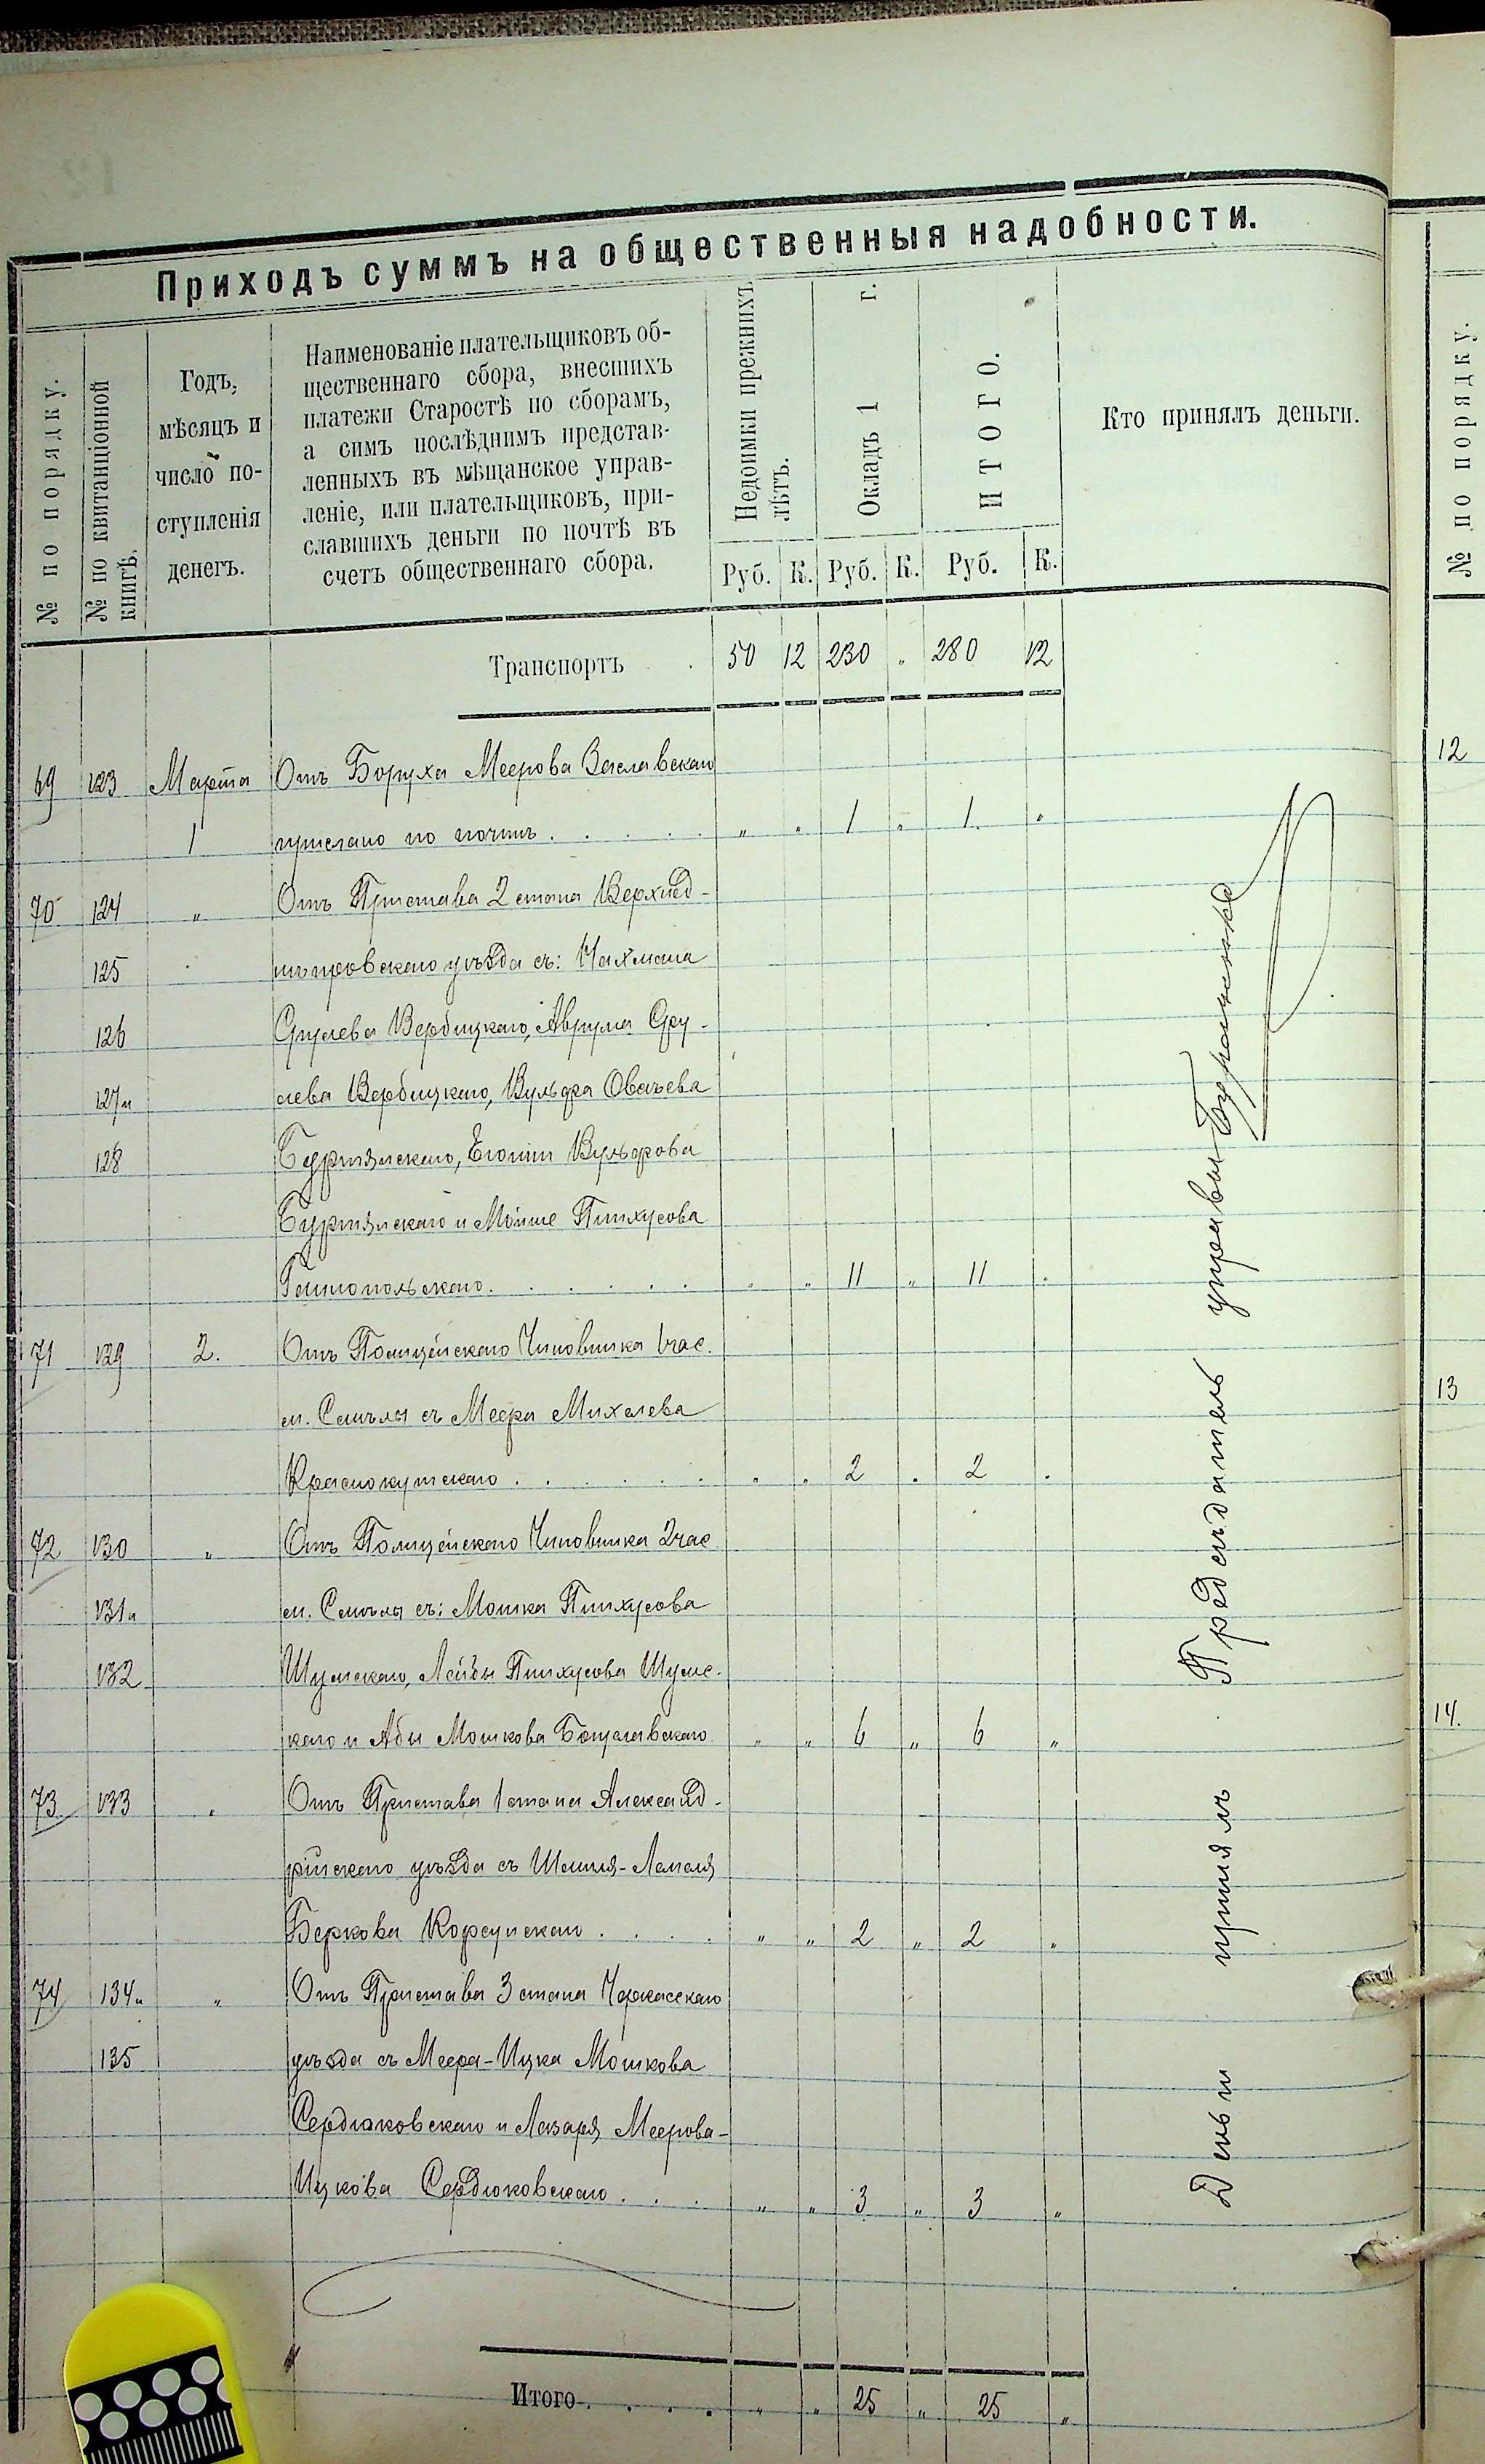 Приходъ суммъ на общественныя надобности.
№ по порядку.
№ по квитанціонной книгѣ.
Годъ, мѣсяцъ и число поступленія денегъ.
Наименованіе плательщиковъ об-
щественнаго сбора, внесшихъ
платежи Старостѣ по сборамъ,
а симъ послѣднимъ представ-
ленныхъ въ мѣщанское управ-
леніе, или плательщиковъ, при-
славшихъ деньги по почтѣ въ
счетъ общественнаго сбора.
Недоимки прежнихъ лѣтъ.
Окладъ 1 г.
ИТОГО.
Кто принялъ деньги.
Руб. К. Руб. К. Руб. К.
Транспортъ . 50 12 230 " 280 12
69 123 Марта Отъ Боруха Меерова Заславскаго
1 прислано по почтѣ . . . . . " " 1 " 1 "
70 124 " Отъ Пристава 2 стана Верхнед-
125 нѣпровскаго уѣзда съ: Нахмана
126 Срулева Вербицкаго, Аврума Сру-
127 и лева Вербицкаго, Вульфа Овсѣева
128 Вульфова
и Мойше Пинхусова
. . . . . " " 11 " 11 "
71 129 2. Отъ Полицейскаго Чиновника 1 час.
м. Смѣлы съ Меера Михелева
Краснокутскаго . . . . . . " " 2 " 2 "
72 130 " Отъ Полицейскаго Чиновника 2 час
131 и м. Смѣлы съ: Мошка Пинхусова
132 Шумскаго, Лейбы Пинхусова Шумс-
каго и Абы Мошкова Богуславскаго " " 6 " 6 "
73 133 " Отъ Пристава 1 стана Александ-
рійскаго уѣзда съ
Беркова Корсунскаго . . . . " " 2 " 2 "
74 134 и " Отъ Пристава 3 стана Черкасскаго
135 уѣзда съ Меера-Ицка Мошкова
Сердюковскаго и Лазаря Меерова-
Ицкова Сердюковскаго . . . " " 3 " 3 "
Итого . . . . " " 25 " 25 "
Деньги принялъ Предсѣдатель управы
№ по порядку.
12
13
14.